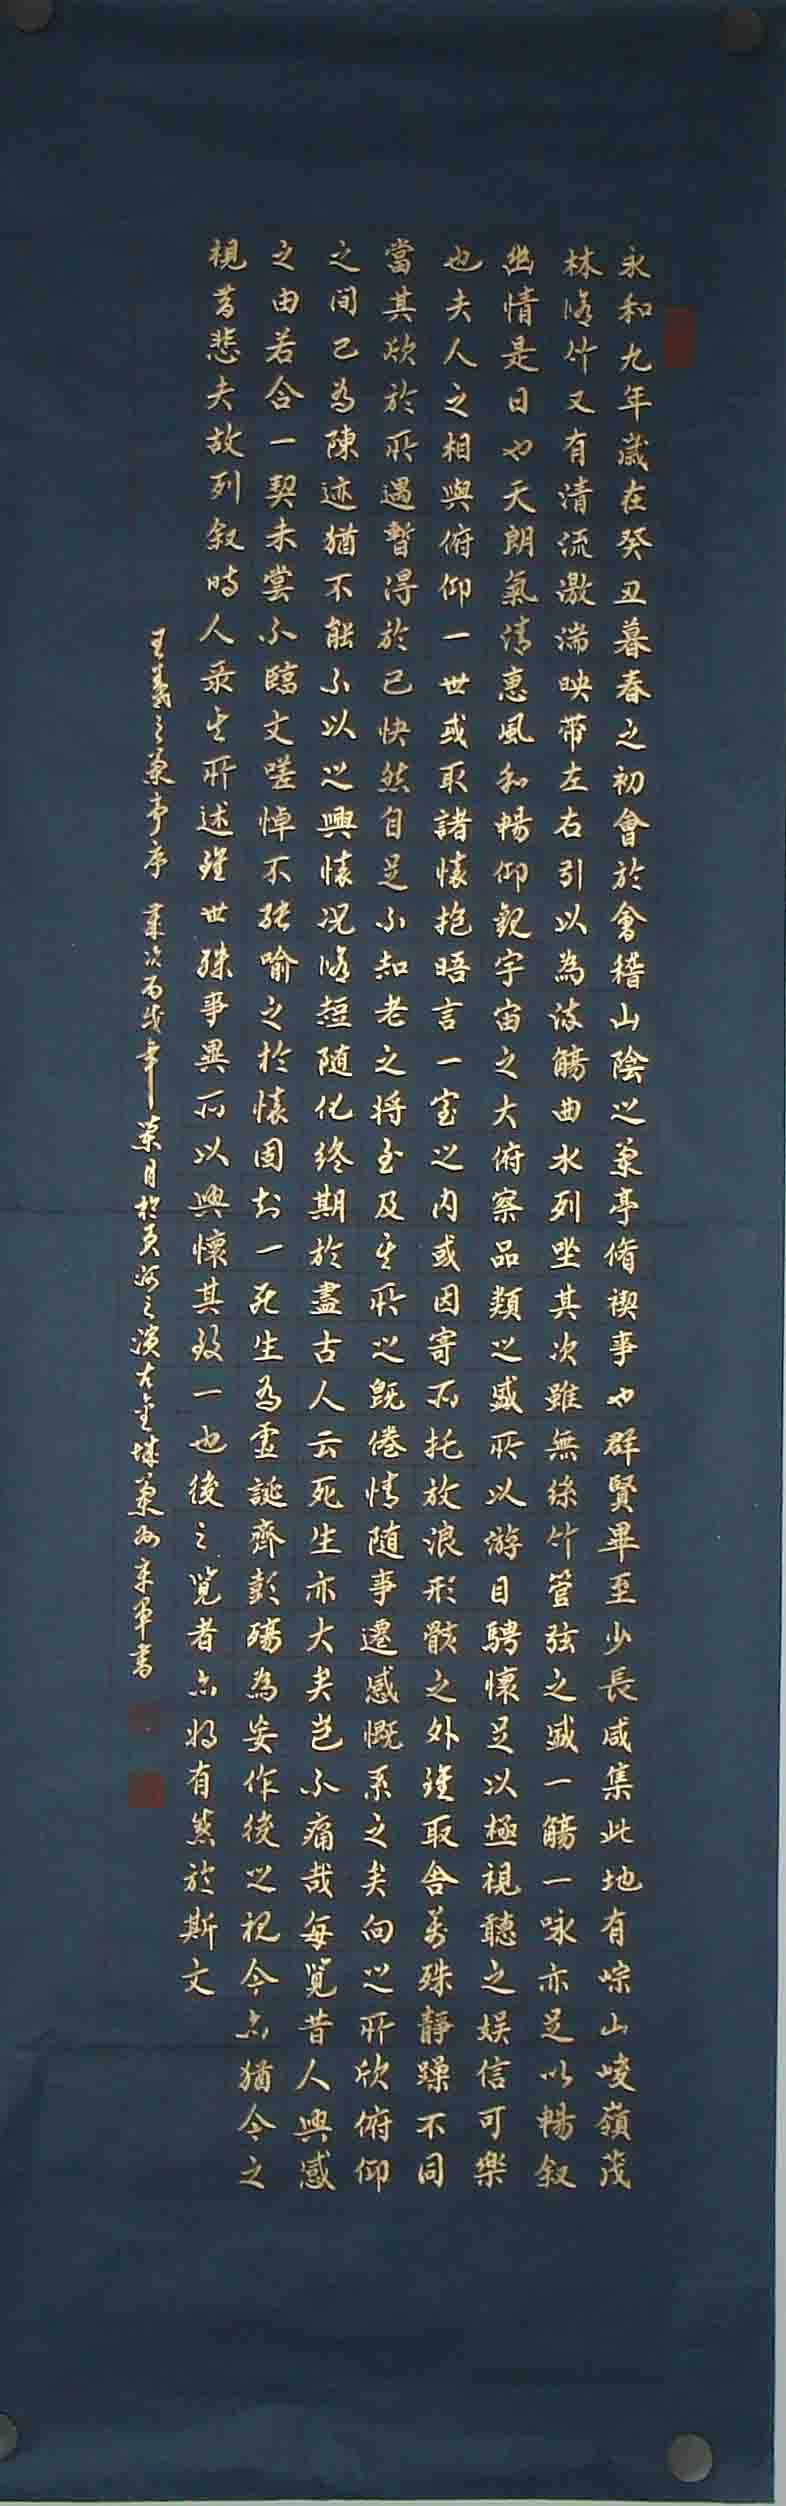 永和九年歲在癸丑暮春之初會於會稽山陰之蘭亭脩禊事也群賢畢至少長咸集此地有崇山峻嶺茂
林脩竹又有清流激湍映帶左右引以為流觴曲水列坐其次雖無絲竹管弦之盛一觴一咏亦足以暢叙
幽情是日也天朗氣清惠風和暢仰觀宇宙之大俯察品類之盛所以游目騁懷足以極視聽之娛信可樂
也夫人之相與俯仰一世或取諸懷抱晤言一室之内或因寄所托放浪形骸之外雖取舍萬殊靜躁不同
當其欣於所遇暫得於己快然自足不知老之將至及其所之既倦情随事遷感慨系之矣向之所欣俯仰
之間已為陳迹猶不能不以之興懷况脩短随化終期於盡古人云死生亦大矣豈不痛哉每覽昔人興感
之由若合一契未嘗不臨文嗟悼不能喻之於懷固知一死生為虚誕齊彭殤為妄作後之視今亦猶今之
視昔悲夫故列叙時人录其所述雖世殊事異所以興懷其致一也後之覽者亦將有感於斯文
王羲之蘭亭序 歲次丙戌年菊月於黄河之濱古金城蘭州軍書